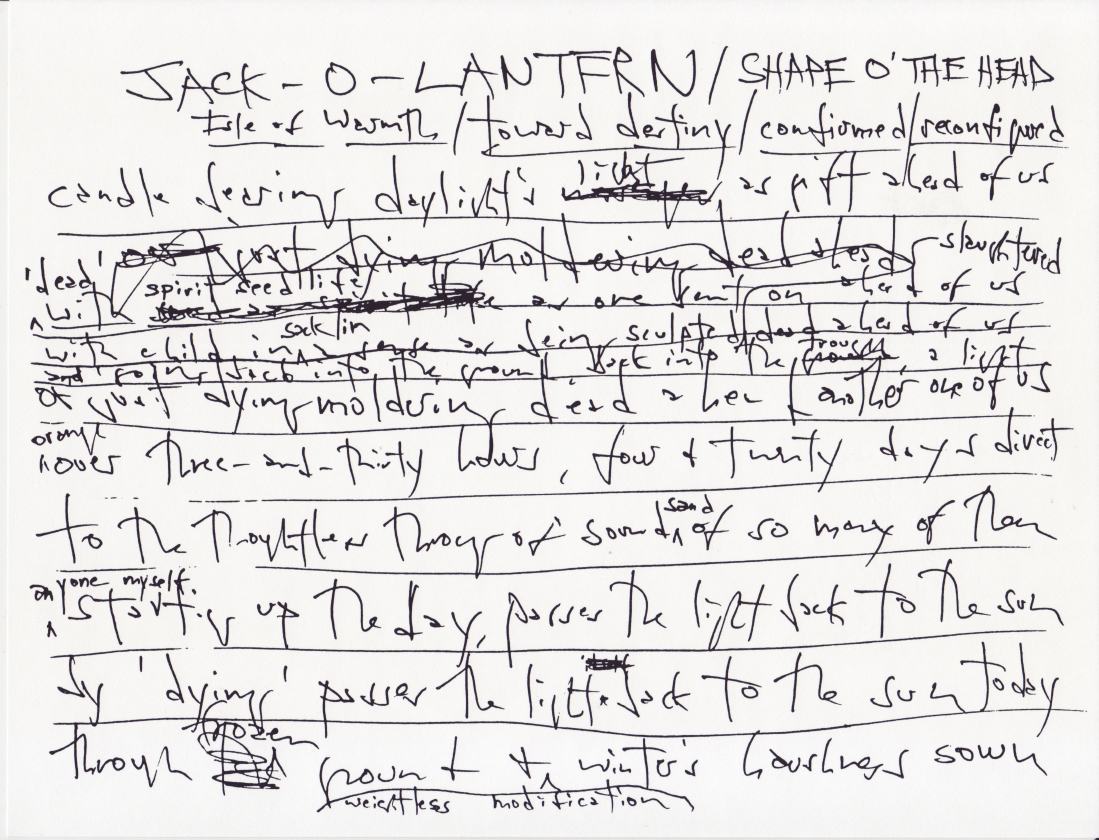 JACK-O-LANTERN / SHAPE O' THE HEAD
Isle of Warmth / toward destiny / confirmed / reconfigured
candle bearing daylight's light as gift ahead of us
dying moldering dead ahead slaughtered
'dead' spirit seed life as one went on ahead of us
with sack/in
with child in a sense as being sculpted dead ahead of us
and going back into the ground back into the trough a light
or just dying moldering dead ahead another one of us
orange
over three-and-thirty hours, four & twenty days direct
to the thoughtless throng of sound sand of so many of them
anyone myself.
starting up the day, passes the light back to the sun
by 'dying' passes the light back to the sun today
through frozen ground & winter's harshness sown
weightless modification